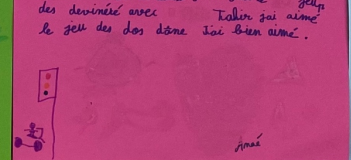 des devinété avec Tahir j'ai aimé
le jeu des dos d'âne j'ai bien aimé.
Anaé